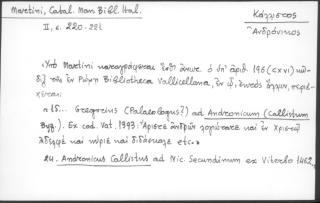 Martini, Catal. Man Bibl. Ital.
II, ε. 220-221
Κάλλιστος
Ἀνδρόνικος
Ὑπὸ Martini καταγράφεται ἐνθ' ἄνωτ. ὁ ὑπ' ἀριθ. 196 (CXVI)
τῆς ἐν Ρώμῃ Bibliotheca Vallicellana, ἐν ᾧ,
15... Gregorius (Palaeologus?) ad Andronicum (Callistum
Byz.). Ex cod. Vat. 1393: Ἄριστε ἀνδρῶν καὶ ἐν Χριστῷ
ἀδελφὲ καὶ κύριε καὶ διδάσκαλε etc.»
24. Andronicus Callistus ad Nic. Secundinum ex Viterbo 1462